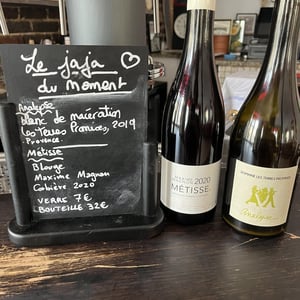 Le jaja
du moment
Analepse
blanc de macération
Les Terres Promises, 2019
Provence.
Métisse
Blouge
Maxime Magnon
Corbière 2020
VERRE 7€
BOUTEILLE 32€
2020
MÉTISSE
DOMAINE LES TERRES PROMISES
Analepse